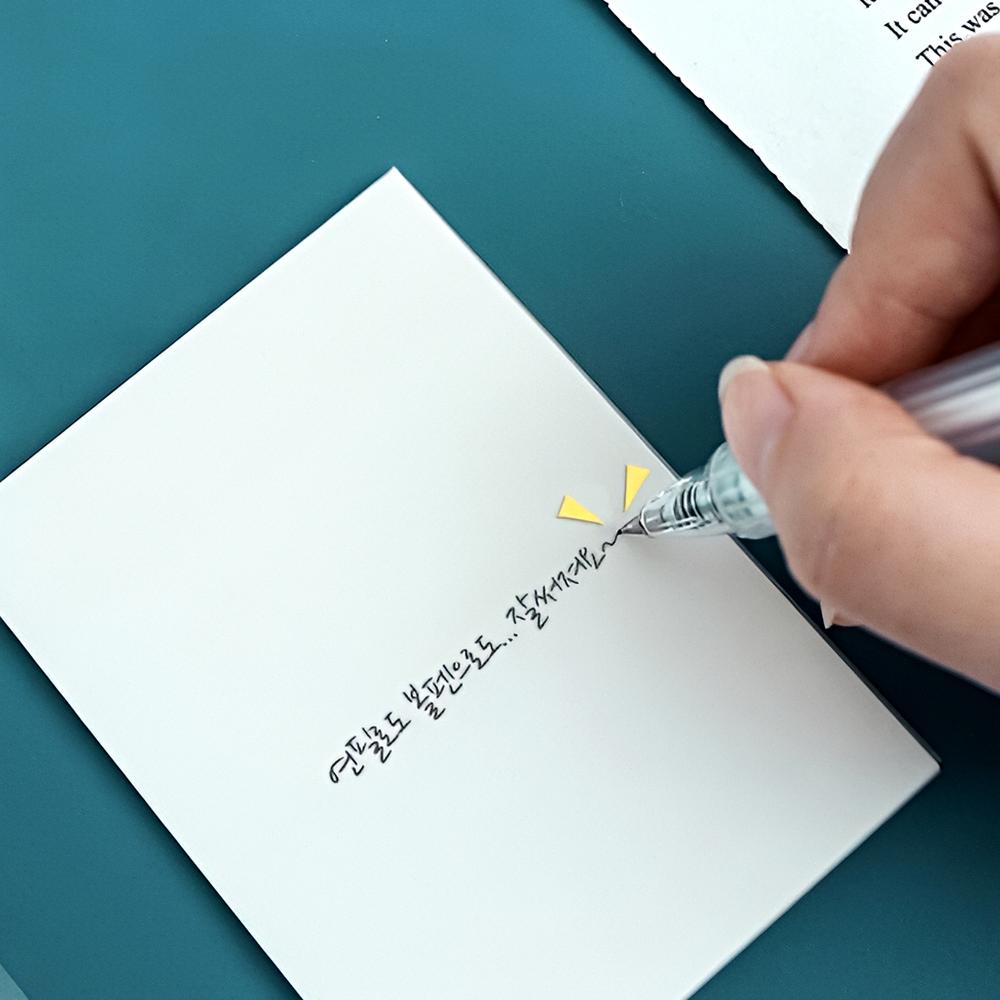 It can
This was
연필로도 볼펜으로도... 잘써져요~